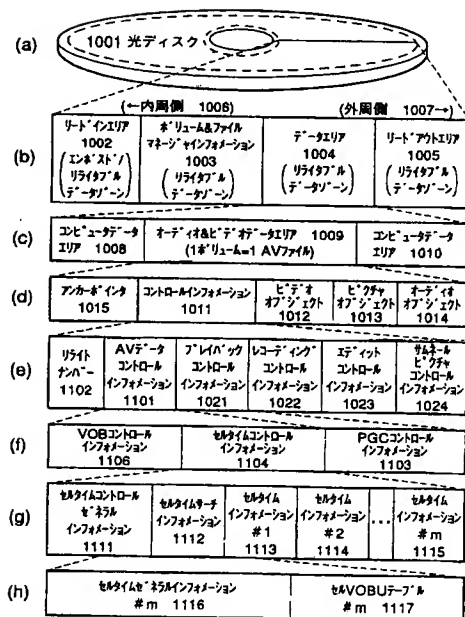 (a)
1001 光ディスク
(←内周側 1006)
(外周側 1007→)
(b)
リードインエリア
1002
(エンボスド/
リライタブル
データゾーン)
ボリューム&ファイル
マネージャインフォメーション
1003
(リライタブル
データゾーン)
データエリア
1004
(リライタブル
データゾーン)
リードアウトエリア
1005
(エンボスド/
リライタブル
データゾーン)
(c)
コンピュータデータ
エリア 1008
オーディオ&ビデオデータエリア 1009
(1ボリューム=1 AVファイル)
コンピュータデータ
エリア 1010
(d)
アンカーポインタ
1015
コントロールインフォメーション
1011
ビデオ
オブジェクト
1012
ピクチャ
オブジェクト
1013
オーディオ
オブジェクト
1014
(e)
リライト
ナンバー
1102
AVデータ
コントロール
インフォメーション
1101
プレイバック
コントロール
インフォメーション
1021
レコーディング
コントロール
インフォメーション
1022
エディット
コントロール
インフォメーション
1023
サムネール
ピクチャ
コントロール
インフォメーション
1024
(f)
VOBコントロール
インフォメーション
1106
セルタイムコントロール
インフォメーション
1104
PGCコントロール
インフォメーション
1103
(g)
セルタイムコントロール
ゼネラル
インフォメーション
1111
セルタイムサーチ
インフォメーション
1112
セルタイム
インフォメーション
#1
1113
セルタイム
インフォメーション
#2
1114
...
セルタイム
インフォメーション
#m
1115
(h)
セルタイムゼネラルインフォメーション
#m 1116
セルVOBUテーブル
#m 1117